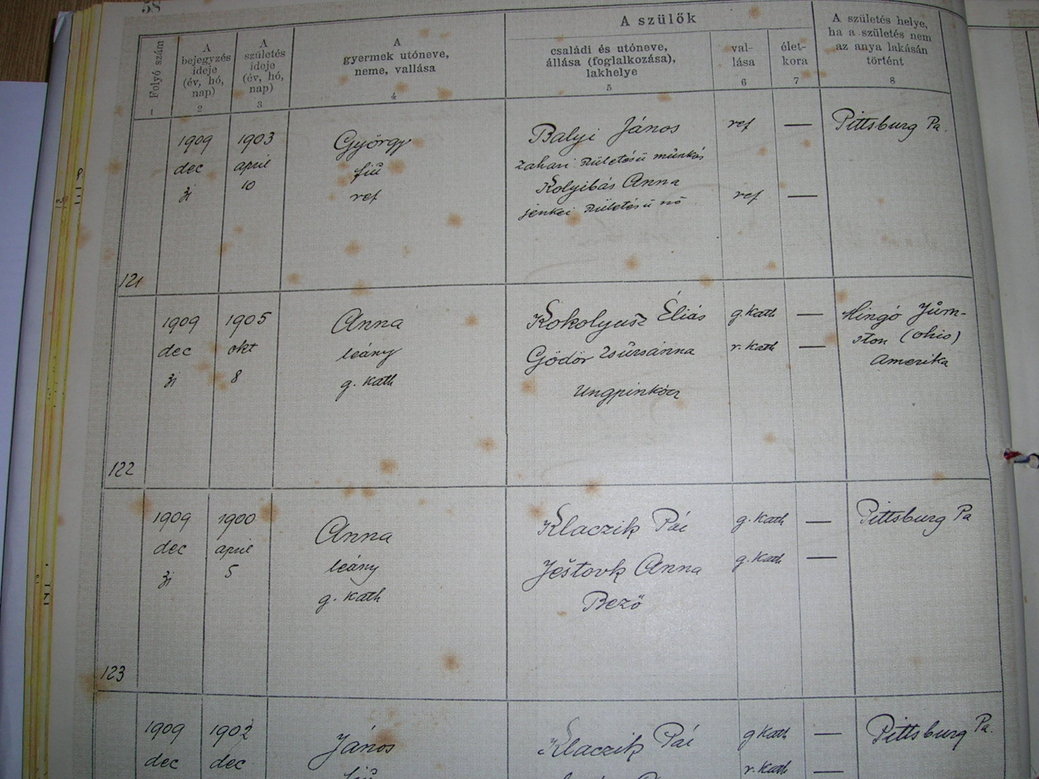 58
A szülők
Folyó szám
A bejegyzés ideje (év, hó, nap)
A születés ideje (év, hó, nap)
A gyermek utóneve, neme, vallása
családi és utóneve, állása (foglalkozása), lakhelye
val-
lása
élet-
kora
A születés helye, ha a születés nem az anya lakásán történt
1 2 3 4 5 6 7 8
1909 1903 György Balyi János ref — Pittsburg Pa.
dec april fiú zahari születésű munkás
31 10 ref Kolyibás Anna ref —
jenkei születésű nő
121
1909 1905 Anna Kokolyusz Éliás g kath — Mingó
dec okt leány Gödör Zsuzsánna r. kath — (ohio)
31 8 g. kath Ungpinkócz Amerika
122
1909 1900 Anna Klaczik Pál g. kath — Pittsburg Pa
dec april leány Anna g. kath —
31 5 g. kath Bező
123
1909 1902 János Klaczik Pál g kath — Pittsburg Pa.
dec dec fiú r. kath —